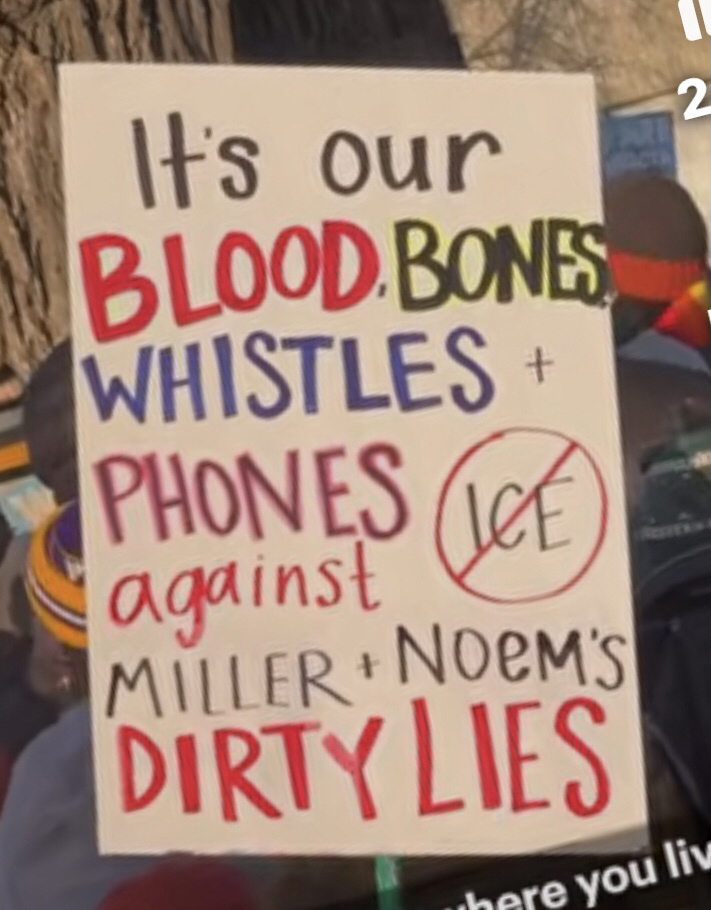 It's our
BLOOD, BONES
WHISTLES +
PHONES
ICE
against
MILLER + NOEM'S
DIRTY LIES
where you liv